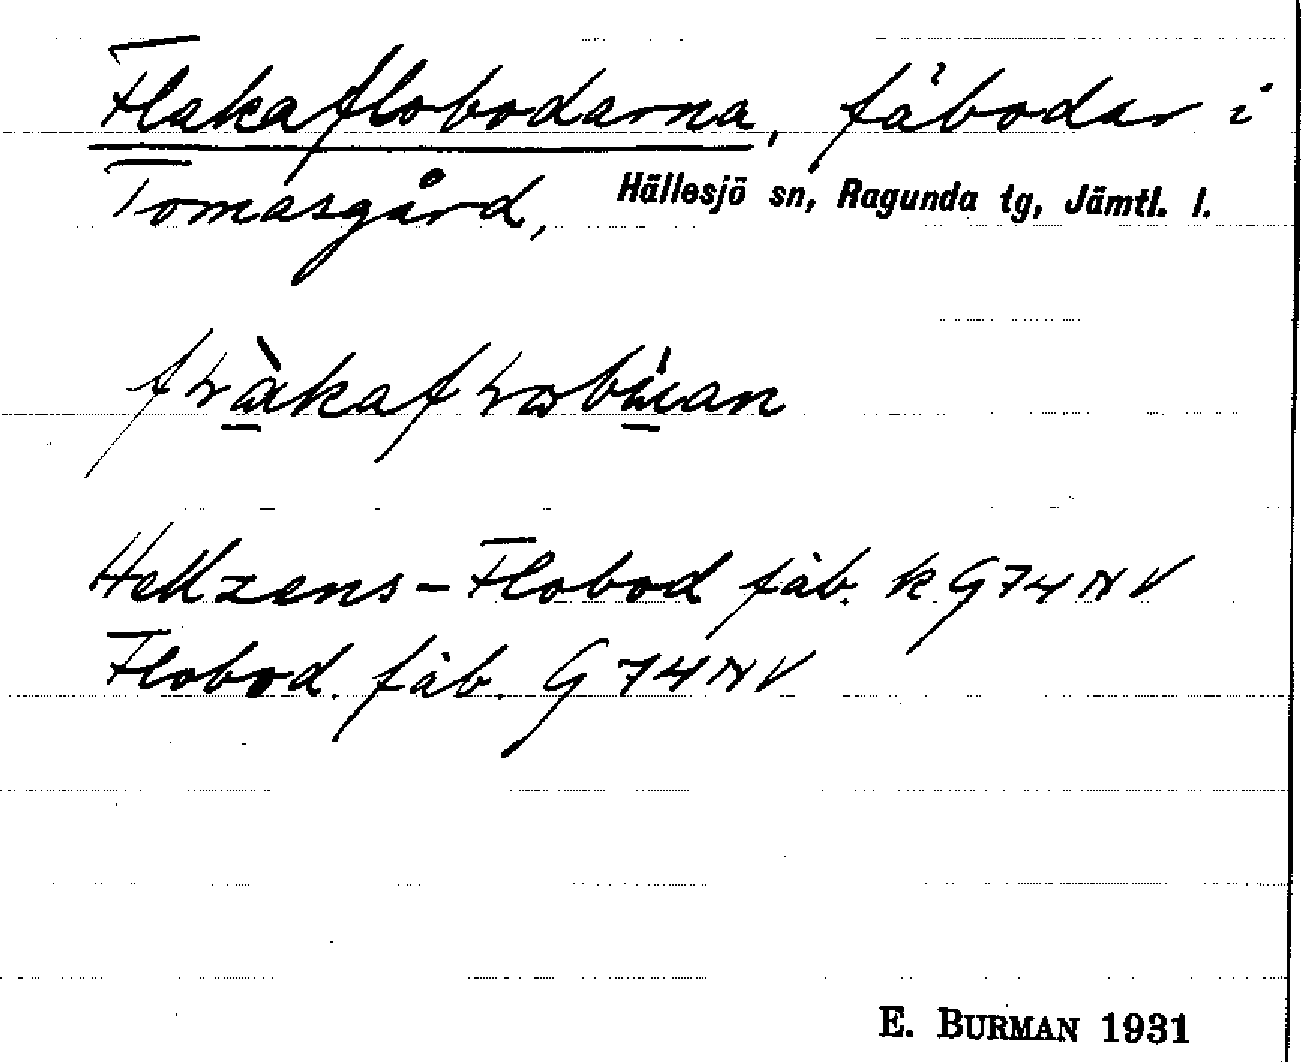 Flakaflobodarna, fäbodar i
Tomasgård, Hällesjö sn, Ragunda tg, Jämtl. l.
Hellzens-Flobod fäb. k G74NV
Flobod. fäb. G74NV
E. BURMAN 1931